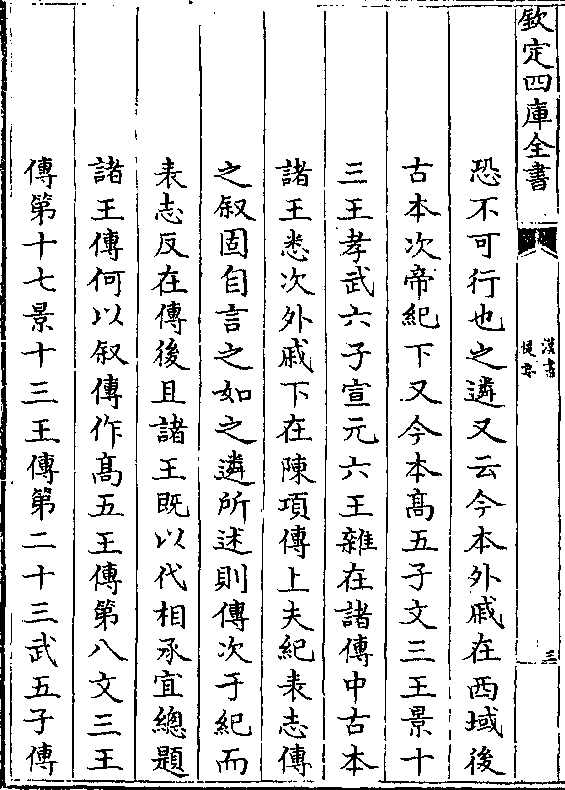 欽定四庫全書
漢書
提要
三
恐不可行也之遴又云今本外戚在西域後
古本次帝紀下又今本髙五子文三王景十
三王孝武六子宣元六王雜在諸傳中古本
諸王悉次外戚下在陳項傳上夫紀表志傳
之叙固自言之如之遴所述則傳次于紀而
表志反在傳後且諸王既以代相承宜總題
諸王傳何以叙傳作髙五王傳第八文三王
傳第十七景十三王傳第二十三武五子傳